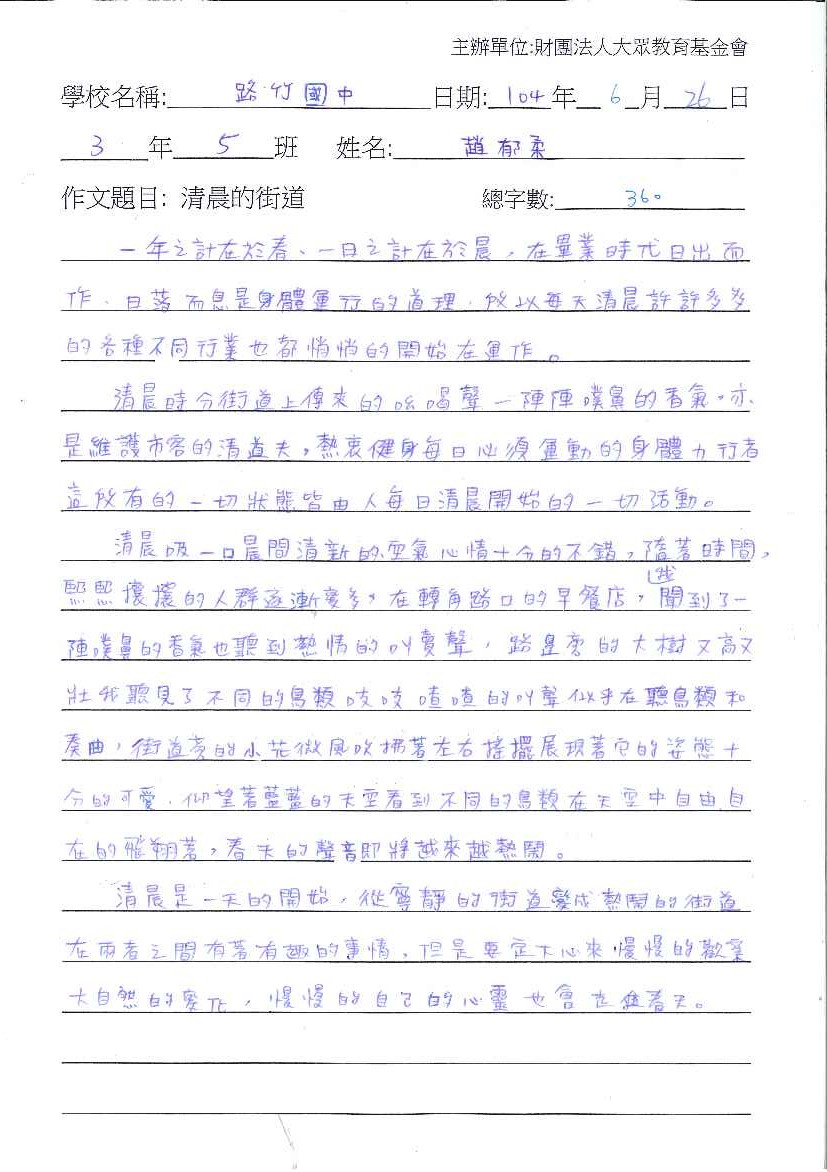 主辦單位:財團法人大眾教育基金會
學校名稱: 路竹國中 日期: 104 年 6 月 26 日
3 年 5 班 姓名: 趙郁柔
作文題目: 清晨的街道 總字數: 360
一年之計在於春、一日之計在於晨,在畢業時代日出而
作、日落而息是身體運行的道理,所以每天清晨許許多多
的各種不同行業也都悄悄的開始在運作。
清晨時分街道上傳來的吆喝聲一陣陣噗鼻的香氣。亦
是維護市容的清道夫,熱衷健身每日必須運動的身體力行者
這所有的一切狀態皆由人每日清晨開始的一切活動。
清晨吸一口晨間清新的空氣心情十分的不錯,隨著時間,
熙熙攘攘的人群逐漸變多,在轉角路口的早餐店,聞到了一
陣噗鼻的香氣也聽到熱情的叫賣聲,路旁的大樹又高又
壯我聽見了不同的鳥類吱吱喳喳的叫聲似乎在聽鳥類和
奏曲,街道旁的小花微風吹拂著左右搖擺展現著它的姿態十
分的可愛,仰望著藍藍的天空看到不同的鳥類在天空中自由自
在的飛翔著,春天的聲音即將越來越熱鬧。
清晨是一天的開始,從寧靜的街道變成熱鬧的街道
在兩者之間有著有趣的事情,但是要定下心來慢慢的歡
大自然的變化,慢慢的自己的心靈也會 春天。